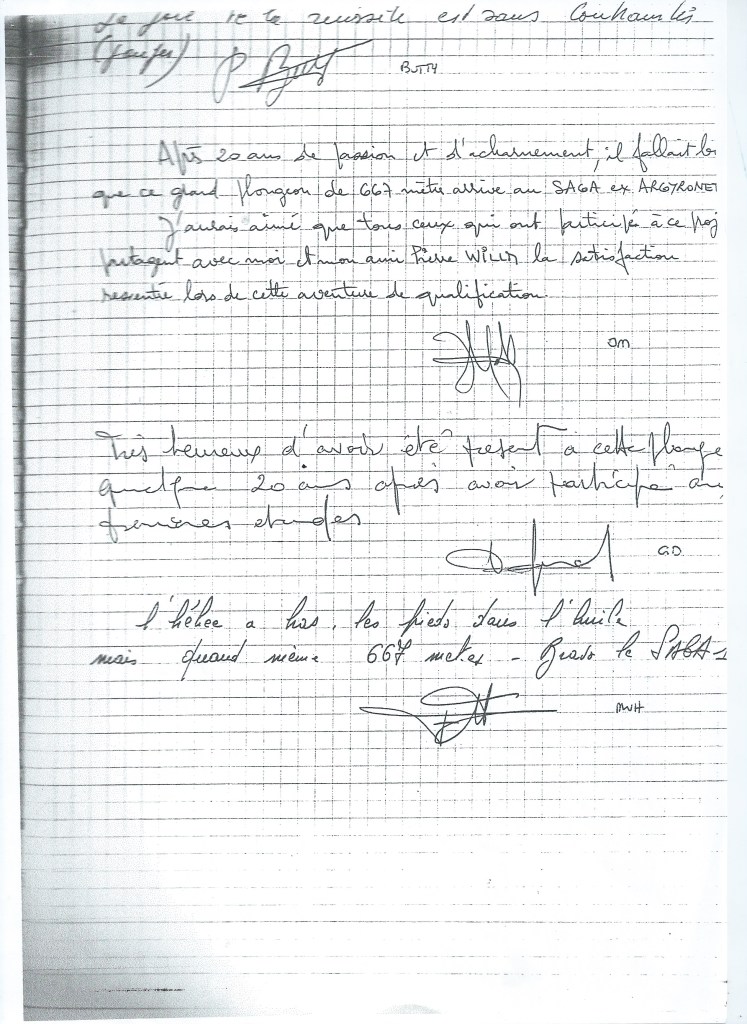 La joie de la réussite est sans
P. Butty BUTTY
Après 20 ans de passion et d'acharnement, il fallait bi
que ce grand plongeon de 667 mètres arrive au SAGA ex ARGYRONET
J'aurais aimé que tous ceux qui ont participé à ce proj
partagent avec moi et mon ami Pierre WILLM la satisfaction
ressentie lors de cette aventure de qualification.
OM
Très heureux d'avoir été présent à cette plongé
quelque 20 ans après avoir participé au
premières études
GD
l'hélice a bas, les pieds dans l'huile
mais quand même 667 metres - Bravo le SAGA-1